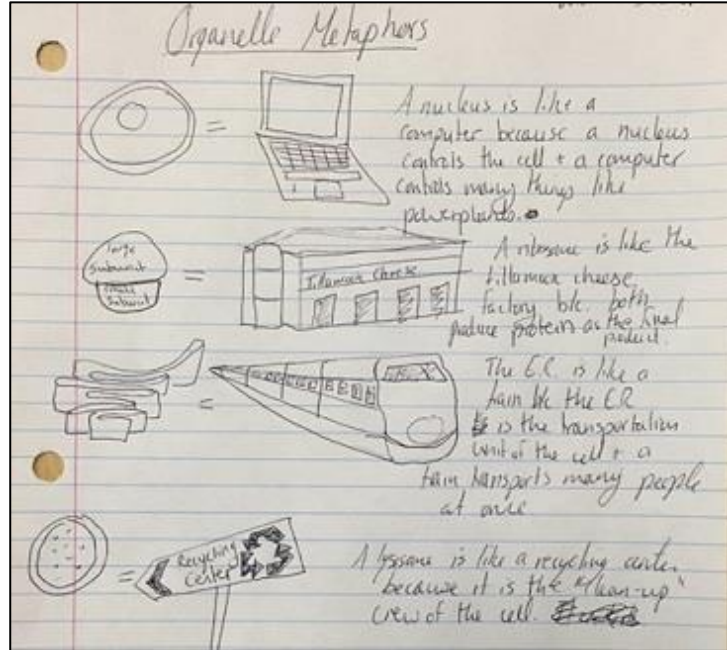 Organelle Metaphors
A nucleus is like a
computer because a nucleus
controls the cell + a computer
controls many things like
powerplants.
large
subunit
small
subunit
Tillamook Cheese
A ribosome is like the
tillamook cheese
factory b/c both
produce protein as the final
product.
The E.R. is like a
train b/c the ER
is the transportation
unit of the cell + a
train transports many people
at once
Recycling
Center
A lysosome is like a recycling center
because it is the "clean-up"
crew of the cell.